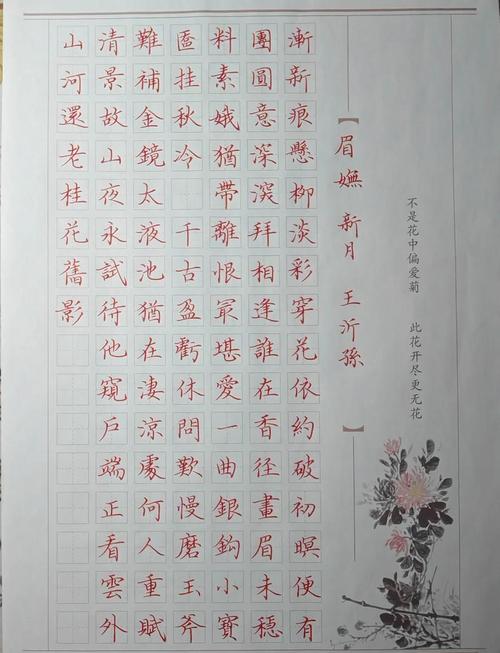 不是花中偏爱菊 此花开尽更无花
【眉嫵 新月 王沂孫】
漸新痕懸柳淡彩穿花依約破初暝便有
團圓意深深拜相逢誰在香徑畫眉未穩
料素娥猶帶離恨冣堪愛一曲銀鈎小寶
匳挂秋冷 千古盈虧休問歎慢磨玉斧
難補金鏡太液池猶在淒涼處何人重賦
清景故山夜永試待他窺戶端正看雲外
山河還老桂花舊影